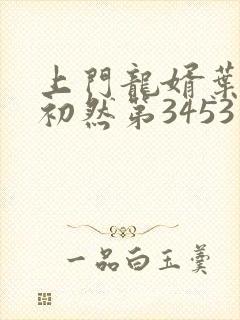 上門龍婿葉
初然第3453
一品白玉羹